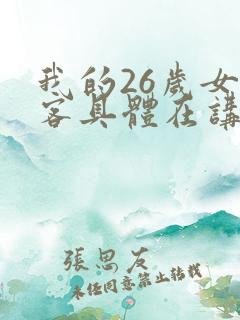 我的26歲女
客具體在講
張思友
未经同意禁止转载